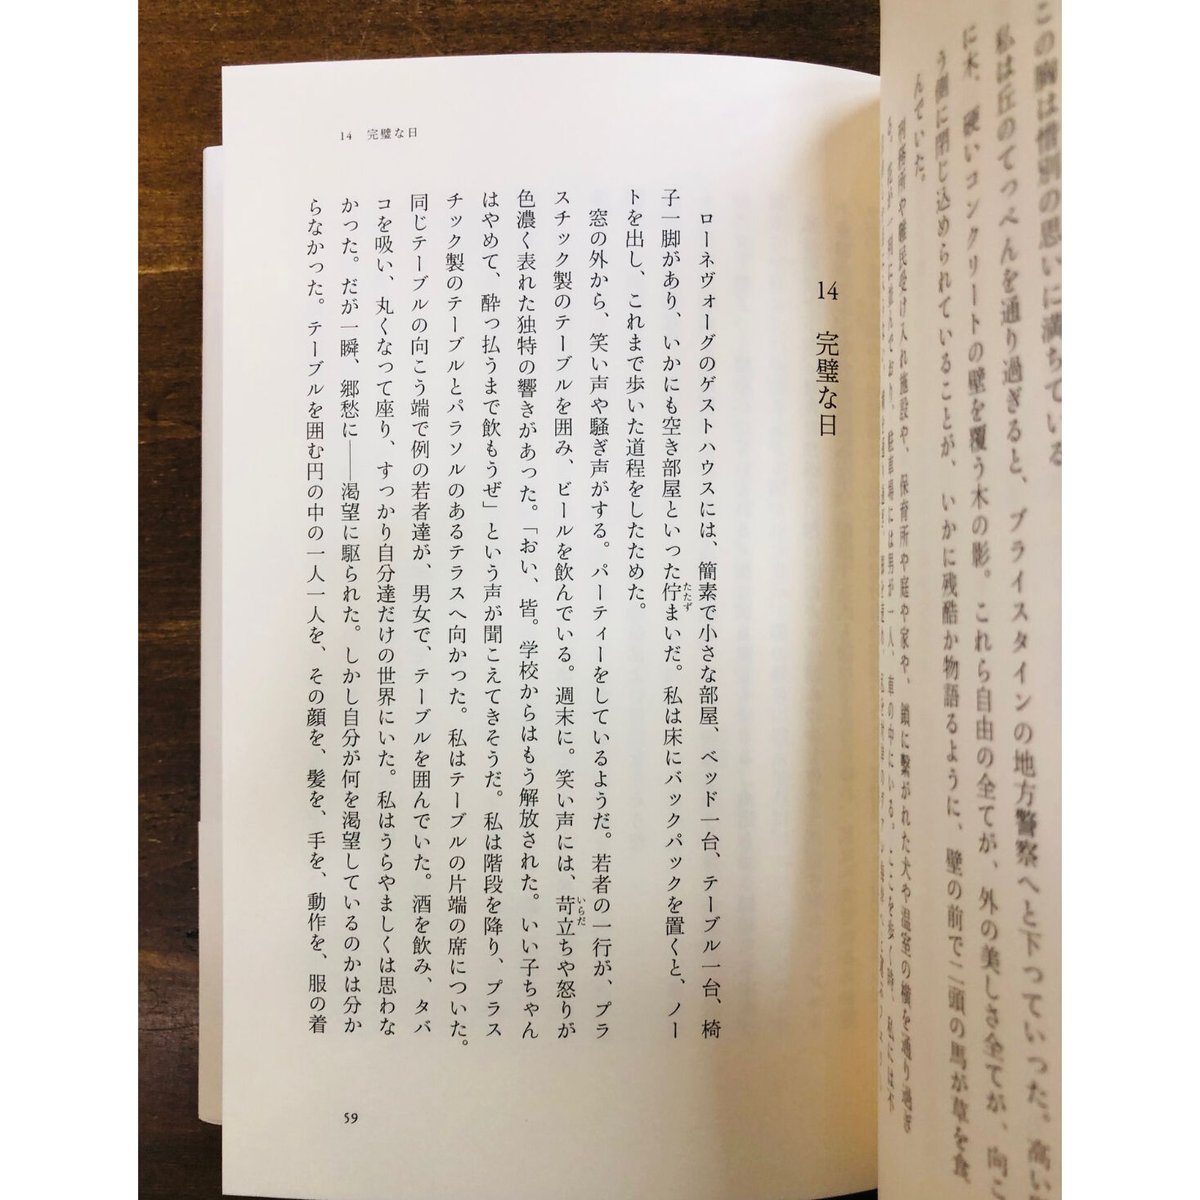 この胸は惜別の思いに満ちている
私は丘のてっぺんを通り過ぎると、ブライスタインの地方警察へと下っていった。高い
に木、硬いコンクリートの壁を覆う木の影。これら自由の全てが、外の美しさ全てが、向こ
う側に閉じ込められていることが、いかに残酷か物語るように、壁の前で二頭の馬が草を食
んでいた。
14 完璧な日
14 完璧な日
ローネヴォーグのゲストハウスには、簡素で小さな部屋、ベッド一台、テーブル一台、椅
子一脚があり、いかにも空き部屋といった佇まいだ。私は床にバックパックを置くと、ノー
たたず
トを出し、これまで歩いた道程をしたためた。
窓の外から、笑い声や騒ぎ声がする。パーティーをしているようだ。若者の一行が、プラ
スチック製のテーブルを囲み、ビールを飲んでいる。週末に。笑い声には、苛立ちや怒りが
いらだ
色濃く表れた独特の響きがあった。「おい、皆。学校からはもう解放された。いい子ちゃん
はやめて、酔っ払うまで飲もうぜ」という声が聞こえてきそうだ。私は階段を降り、プラス
チック製のテーブルとパラソルのあるテラスへ向かった。私はテーブルの片端の席についた。
同じテーブルの向こう端で例の若者達が、男女で、テーブルを囲んでいた。酒を飲み、タバ
コを吸い、丸くなって座り、すっかり自分達だけの世界にいた。私はうらやましくは思わな
かった。だが一瞬、郷愁に――渇望に駆られた。しかし自分が何を渇望しているのかは分か
らなかった。テーブルを囲む円の中の一人一人を、その顔を、髪を、手を、動作を、服の着
59